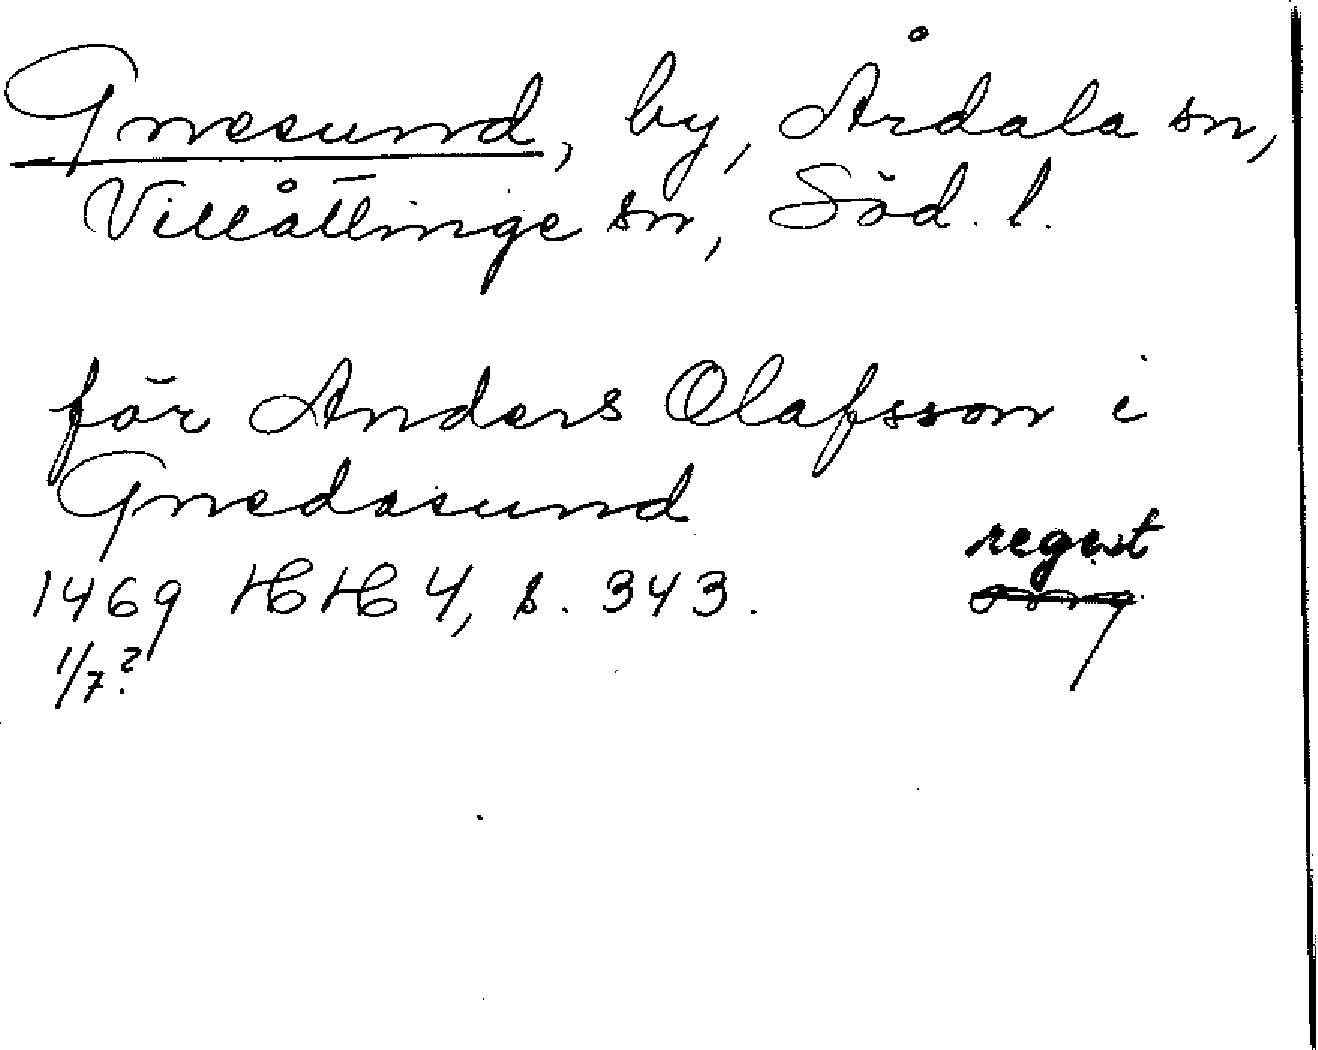 Gnesund, by, Årdala sn,
Villåttinge sn, Söd. l.
för Anders Olafsson i
Gnedasund
regest
1469 HH 4, s. 343.
orig
1/7?